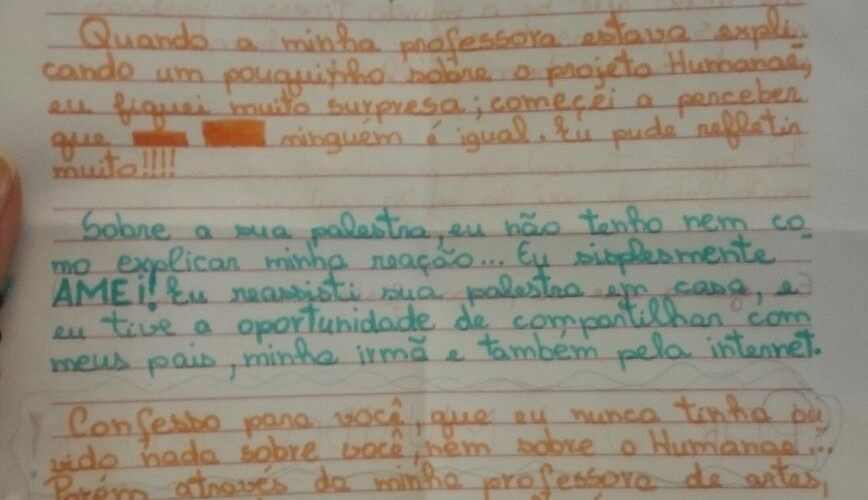 Quando a minha professora estava expli
cando um pouquinho sobre o projeto Humanae,
eu fiquei muito surpresa; começei a perceber
que ninguém é igual. Eu pude refletir
muito!!!!
Sobre a sua palestra, eu não tenho nem co
mo explicar minha reação... Eu sisplesmente
AMEI! Eu reassisti sua palestra em casa, e
eu tive a oportunidade de compartilhar com
meus pais, minha irmã e também pela internet.
Confesso para você, que eu nunca tinha ou
vido nada sobre você, nem sobre o Humanae...
Porém através da minha professora de artes,